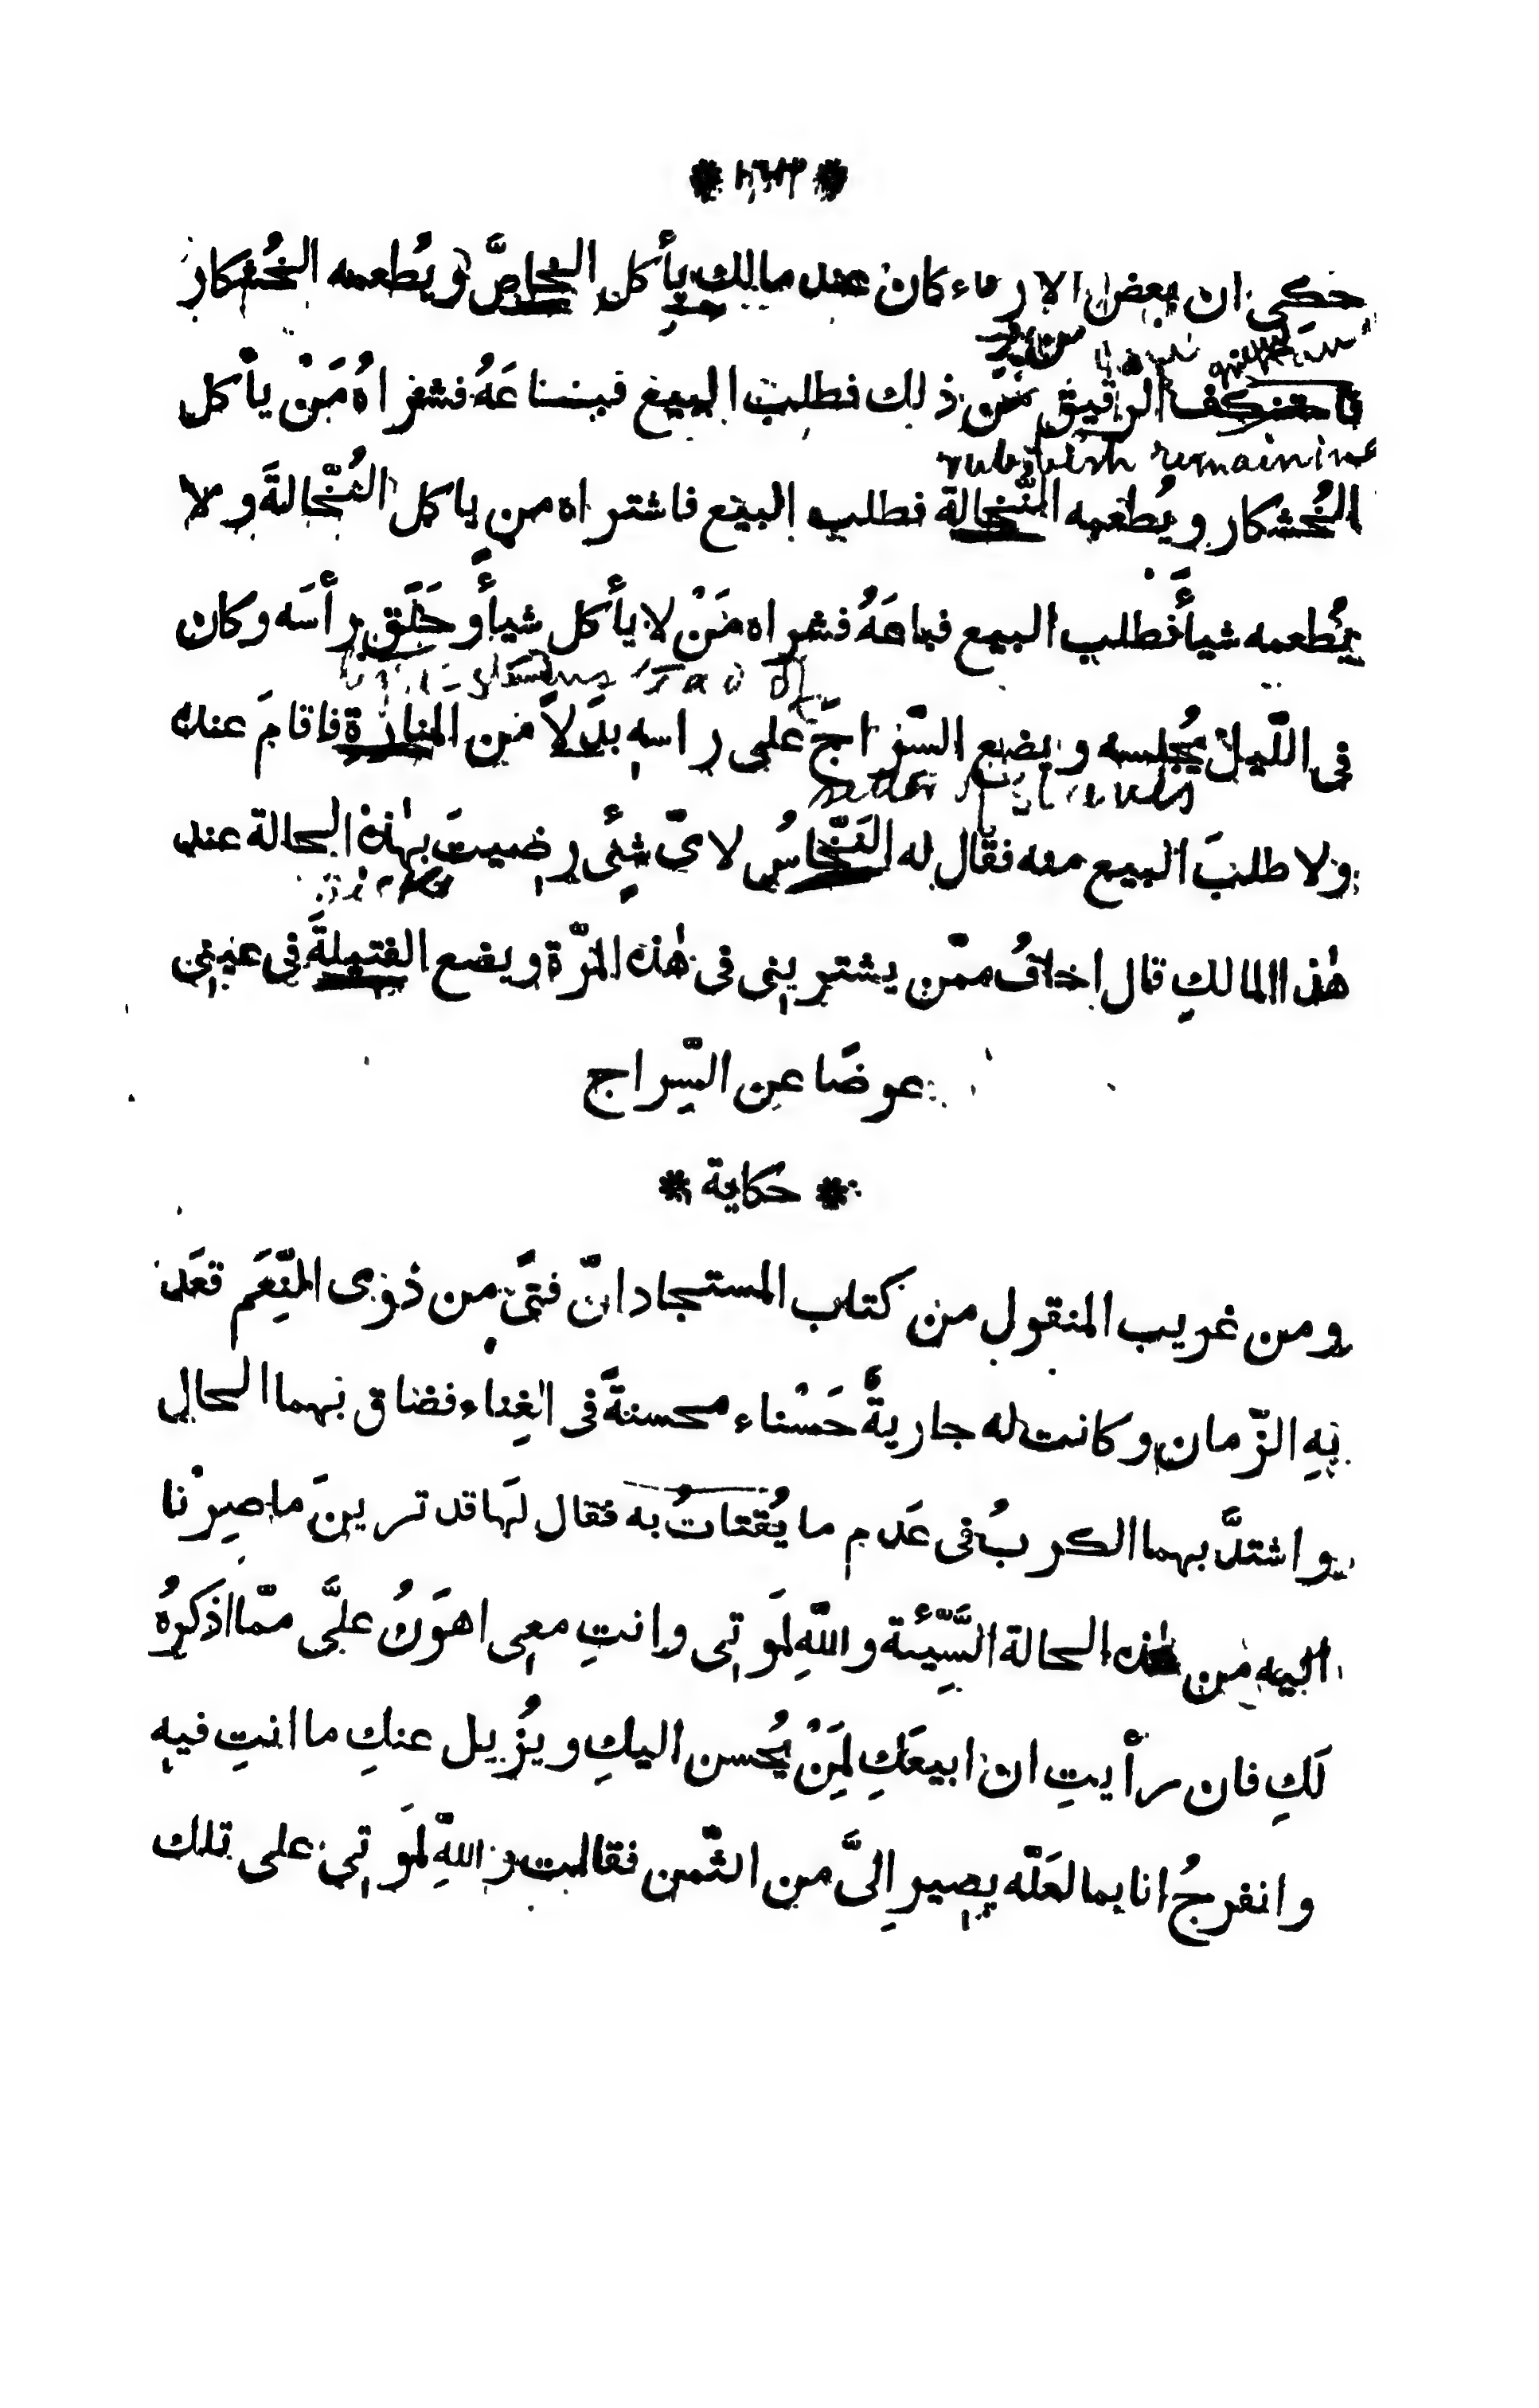 حكى ان بعض الارقاء كان عند مالك يأكل الخاصَّ ويُطعمه الخُشكار
فاستنكف الرّقيق من ذلك فطلب البيع فباعَهُ فشراهُ مَنْ يأكل
rubbish remaining
الخُشكار ويُطعمه النُّخالة فطلب البيع فاشتراه من ياكل النُّخالةَ ولا
يُطعمه شيأً فطلب البيع فباعَهُ فشراه مَنْ لا يأكل شيأً وحَلَق رأسَه وكان
فى اللّيل يُجلسه ويضع السّراجَ على راسهِ بدَلاً من المَنارَة فاقامَ عنده
ولا طلبَ البيع منه فقال له النَّخّاسُ لاىّ شئٍ رضيتَ بهٰذه الحالة عند
هٰذا المالكِ قال اخافُ ممّن يشترينى فى هٰذه المرّة ويضع الفتيلةَ فى عينى
عوضًا عن السّراج
* حكاية *
ومن غريب المنقول من كتاب المستجاد انّ فتىً من ذوى النِّعَم قعَد
بِهِ الزّمان وكانت له جاريةٌ حَسْناء محسنةً فى الغِناء فضاق بهما الحال
واشتدَّ بهما الكربُ فى عَدم ما يُقتاتُ به فقال لهَا قد ترينَ ما صِرْنا
اليه من هٰذه الحالة السَّيِّئة واللّهِ لَموتى وانتِ معى اهوَنُ علىَّ ممّا اذكرهُ
لَكِ فان رأيتِ ان ابيعَكِ لمَنْ يُحسن اليكِ ويُزيل عنكِ ما انتِ فيه
وانفرجُ انا بما لعَلّه يصير اِلىَّ من الثّمن فقالت واللّهِ لَموتى على تلك